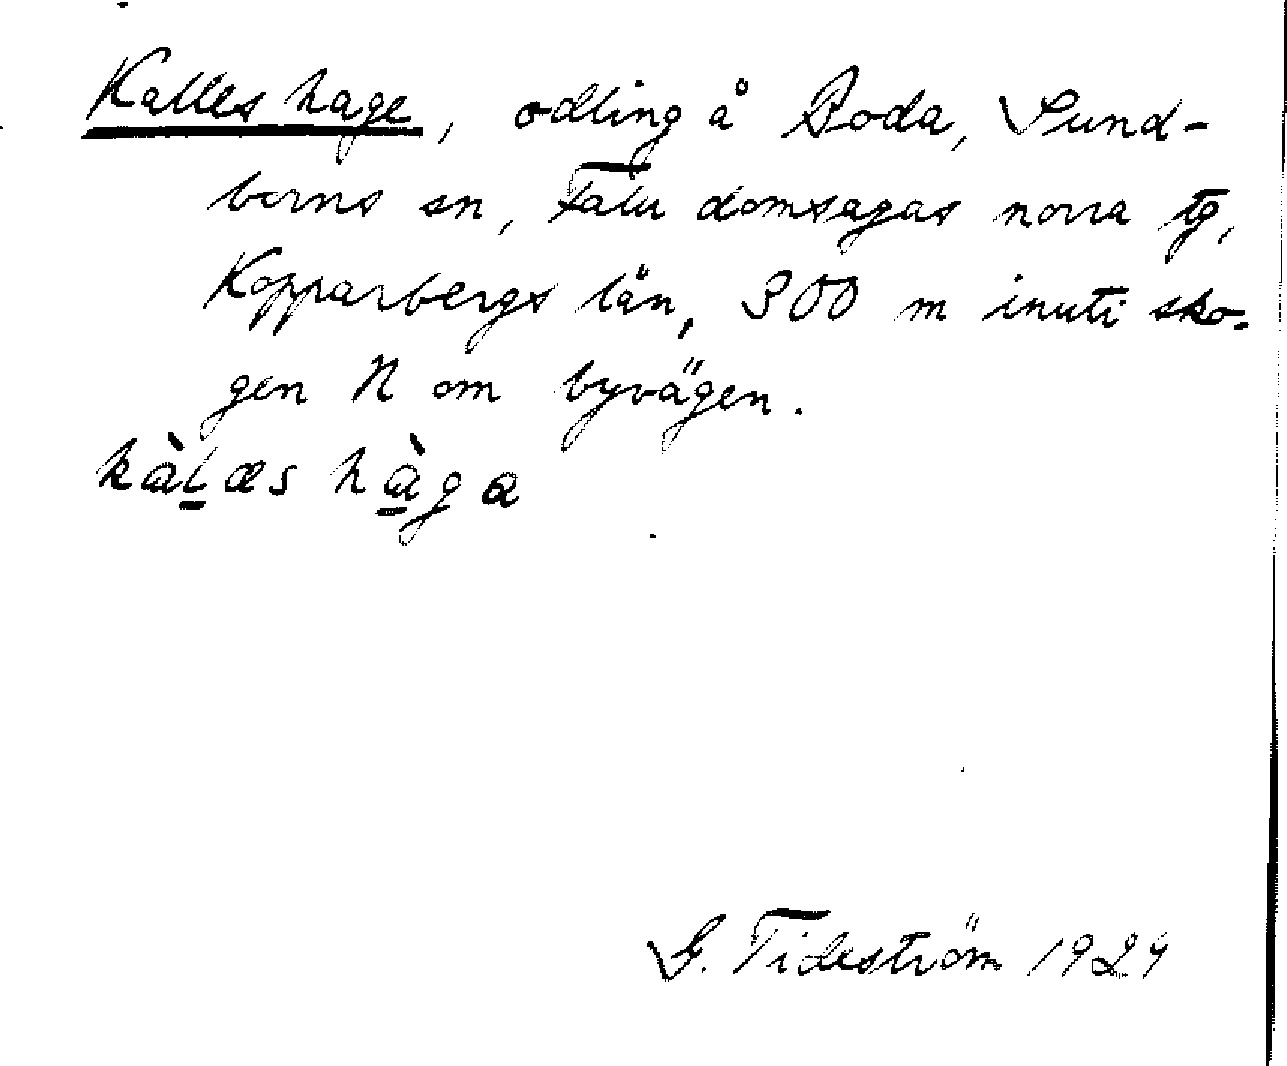 Kalles hage, odling å Boda, Sund-
borns sn, Falu domsagas norra tg,
Kopparbergs län, 300 m inuti sko-
gen N om byvägen.
kàl̲æs hà̲ga
G. Tideström 1924